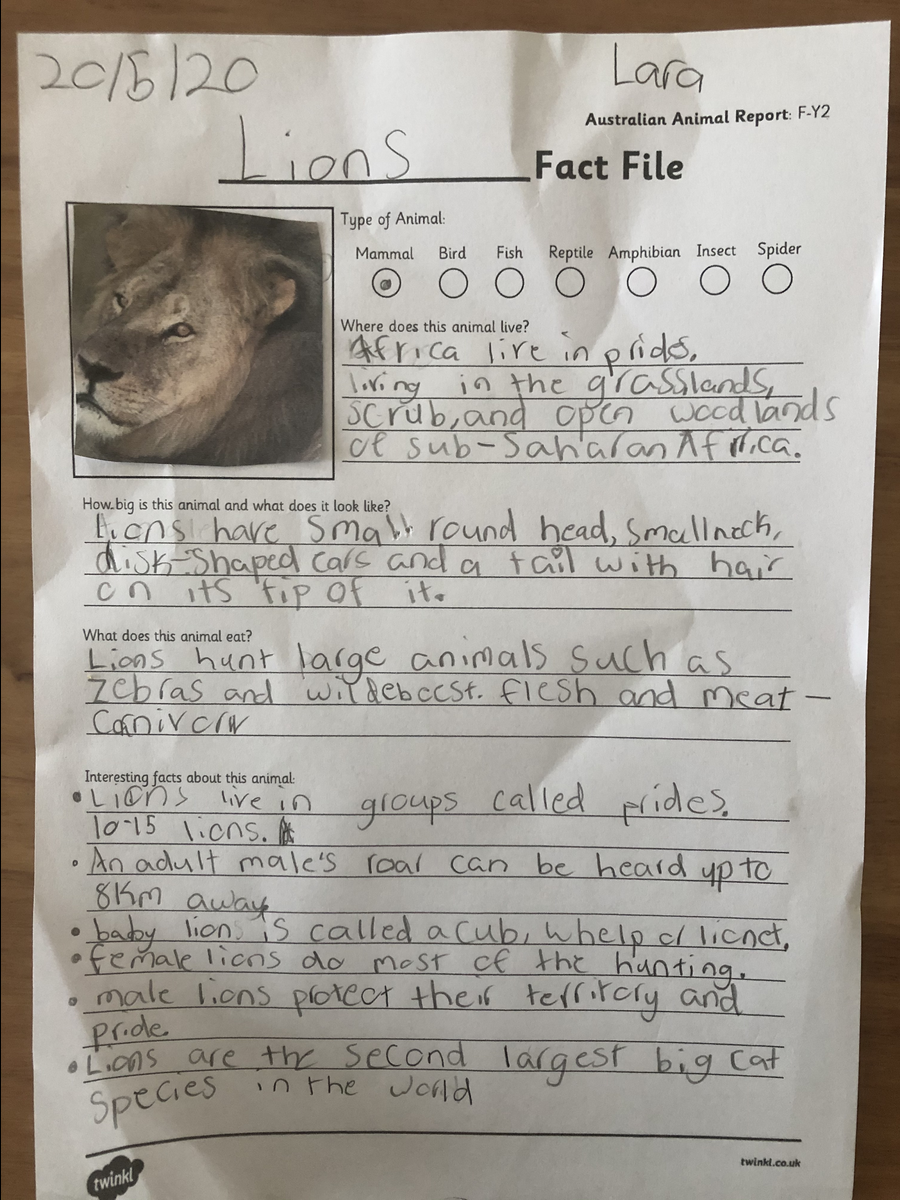 20/5/20
Lara
Australian Animal Report: F-Y2
Lions Fact File
Type of Animal:
Mammal Bird Fish Reptile Amphibian Insect Spider
Where does this animal live?
Africa live in prids.
living in the grasslands,
scrub, and open woodlands
of sub-Saharan Africa.
How big is this animal and what does it look like?
Lions have small round head, small neck,
disk-shaped ears and a tail with hair
on its tip of it.
What does this animal eat?
Lions hunt large animals such as
zebras and wildebeest. flesh and meat -
Interesting facts about this animal:
• Lions live in groups called prides.
10-15 lions.
• An adult male's roar can be heard up to
8Km away
• baby lion is called a cub, whelp or lionet,
• female lions do most of the hunting.
• male lions protect their territory and
pride.
• Lions are the second largest big cat
species in the world
twinkl
twinkl.co.uk